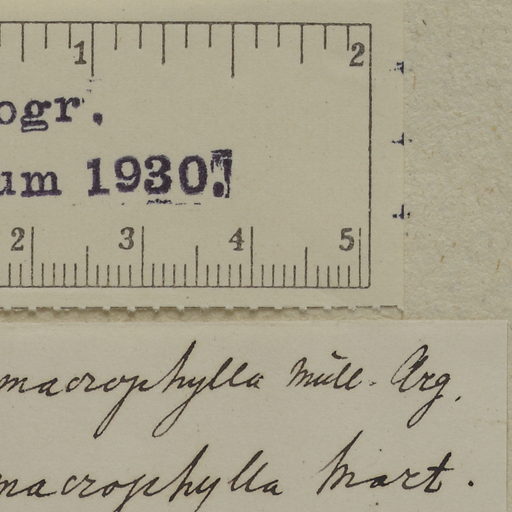 1 2
ogr.
um 1930.
2 3 4 5
macrophylla Müll. Arg.
macrophylla Mart.